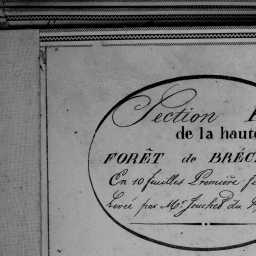 Section
de la haute
FORÊT de BRÉC
En 10 feuilles Première fe
Levé par Mr. Jouches du